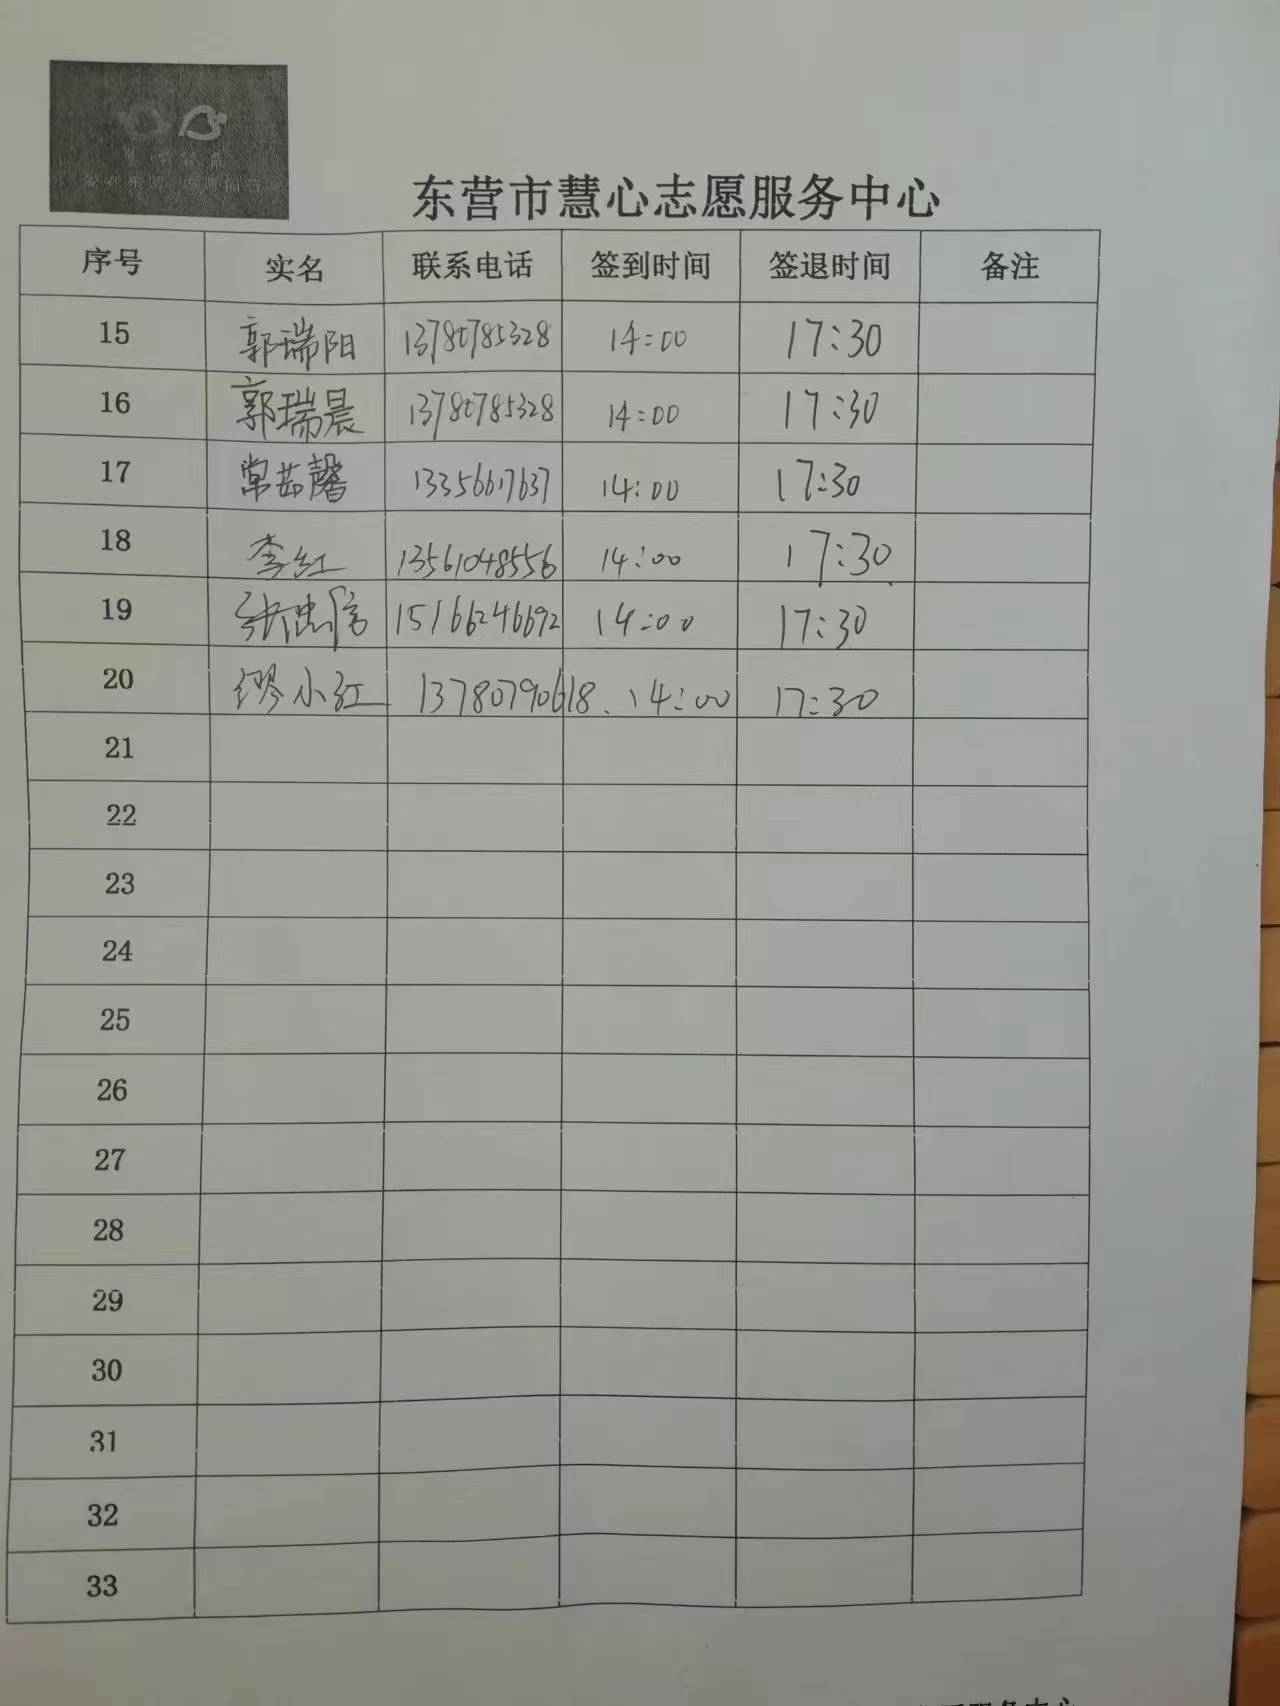 东营市慧心志愿服务中心
序号 实名 联系电话 签到时间 签退时间 备注
15 郭瑞阳 13780785328 14:00 17:30
16 郭瑞晨 13780785328 14:00 17:30
17 常茹馨 13356617637 14:00 17:30
18 李红 13561048556 14:00 17:30
19 张忠信 15166246692 14:00 17:30
20 缪小红 13780790618、14:00 17:30
21
22
23
24
25
26
27
28
29
30
31
32
33